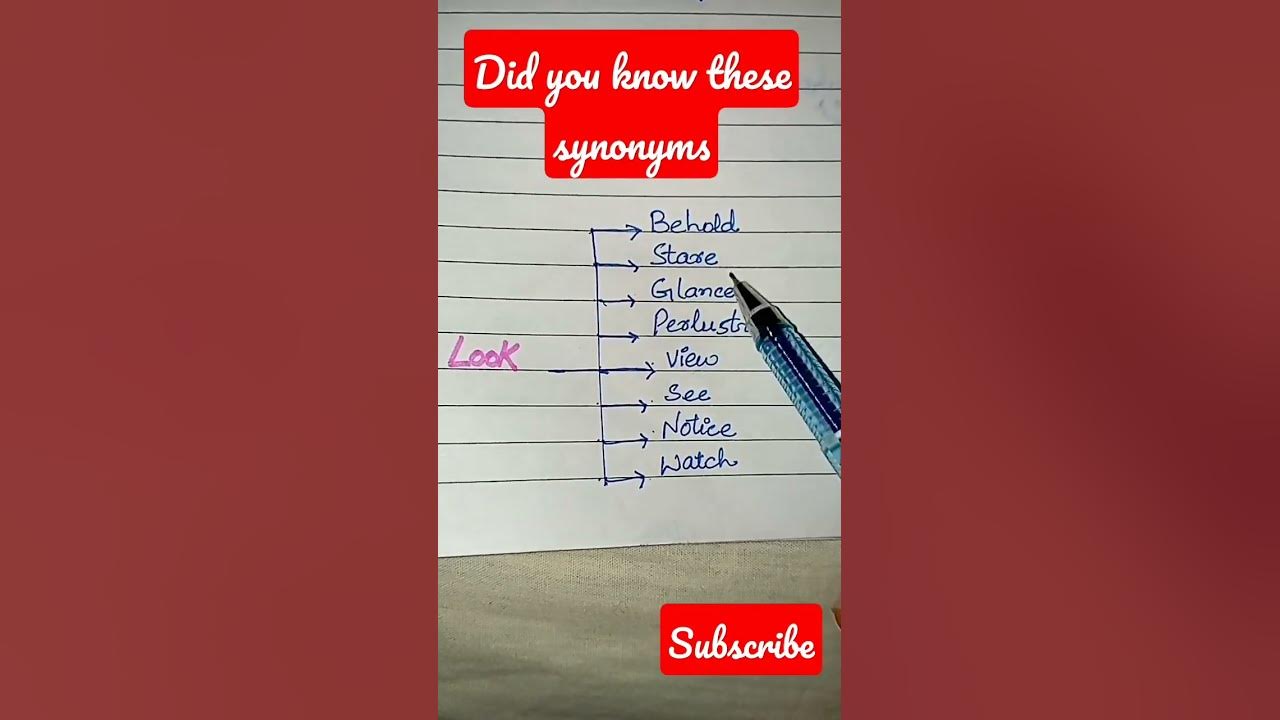 Did you know these
synonyms
Behold
Stare
Glance
Look
View
See
Notice
Watch
Subscribe